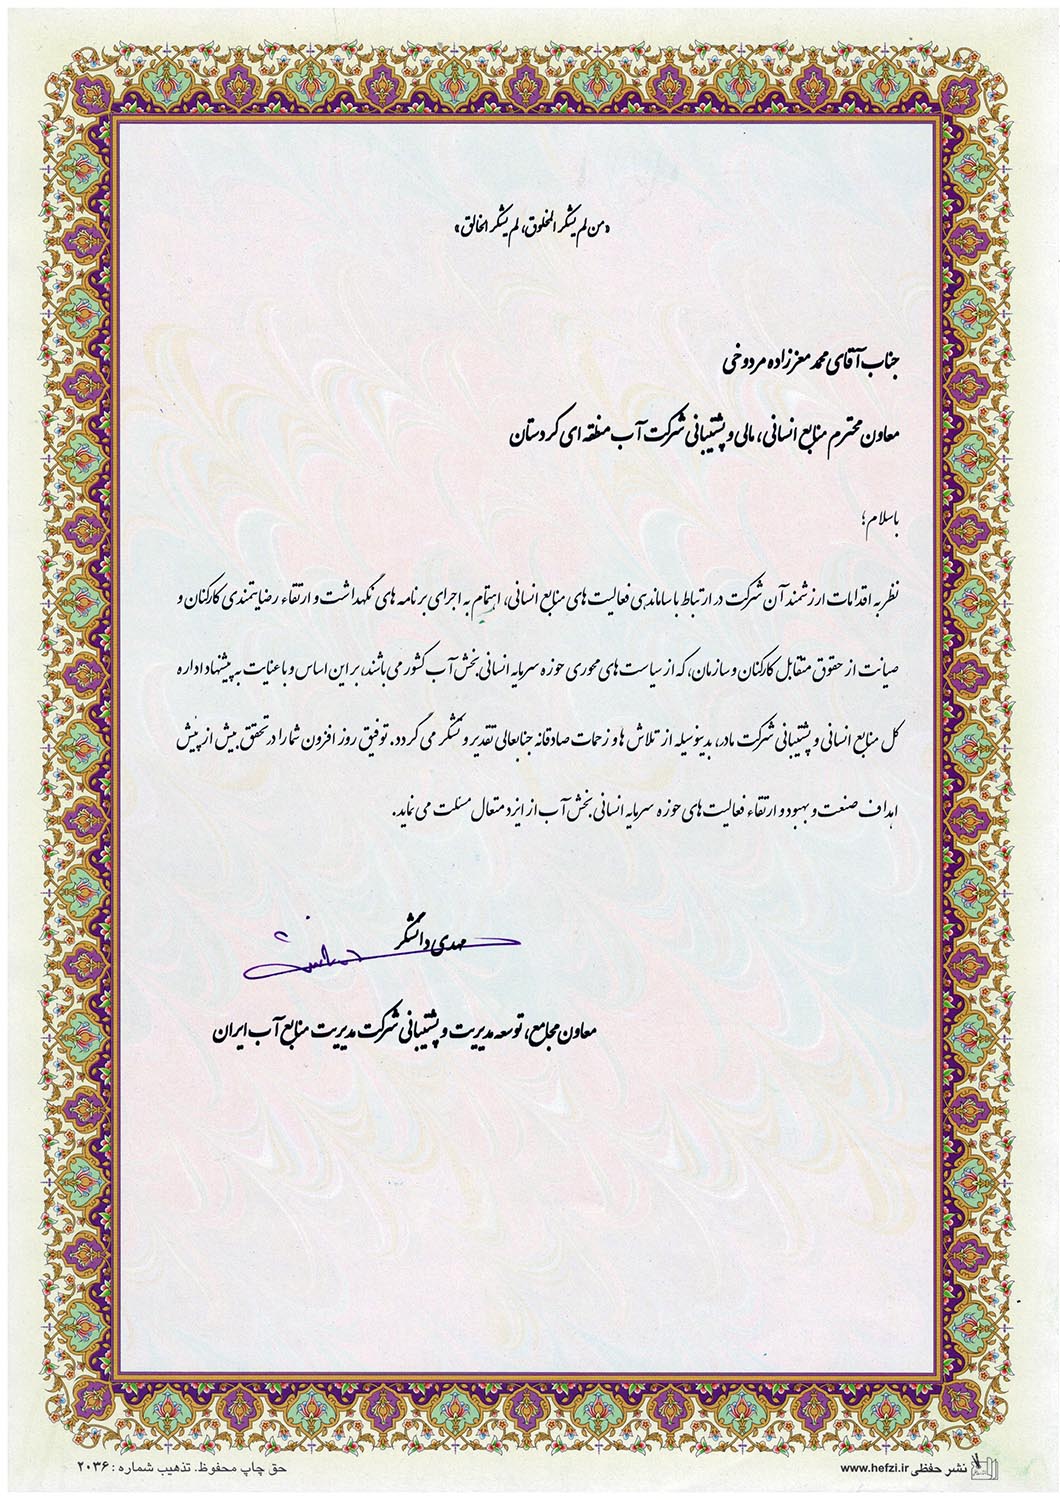 «من لم یشکر المخلوق، لم یشکر الخالق»
جناب آقای محمد معززاده مردوخی
معاون محترم منابع انسانی، مالی و پشتیبانی شرکت آب منطقه ای کردستان
باسلام؛
نظر به اقدامات ارزشمند آن شرکت در ارتباط با ساماندهی فعالیت های منابع انسانی، اهتمام به اجرای برنامه های نگهداشت و ارتقاء رضایتمندی کارکنان و
صیانت از حقوق متقابل کارکنان و سازمان، که از سیاست های محوری حوزه سرمایه انسانی بخش آب کشور می باشند، بر این اساس و با عنایت به پیشنهاد اداره
کل منابع انسانی و پشتیبانی شرکت مادر، بدینوسیله از تلاش ها و زحمات صادقانه جنابعالی تقدیر و تشکر می گردد. توفیق روز افزون شما را در تحقق بیش از پیش
اهداف صنعت و بهبود و ارتقاء فعالیت های حوزه سرمایه انسانی بخش آب از ایزد متعال مسئلت می نماید.
مهدی دانشگر
معاون مجامع، توسعه مدیریت و پشتیبانی شرکت مدیریت منابع آب ایران
نشر حفظی www.hefzi.ir
حق چاپ محفوظ. تذهیب شماره : ۲۰۳۶